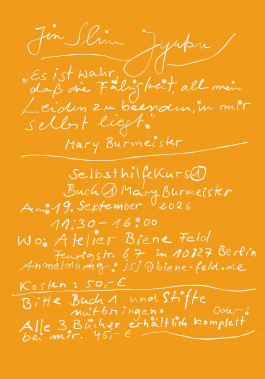 Jin Shin Jyutsu
"Es ist wahr,
daß die Fähigkeit, all mein
Leiden zu beenden, in mir
selbst liegt."
Mary Burmeister
Selbsthilfekurs 1
Buch 1 Mary Burmeister
Am: 19. September 2026
11:30 – 16:00
Wo: Atelier Biene Feld
Feurigstr. 67 in 10827 Berlin
Anmeldung: jsj@biene-feld.de
Kosten: 50,-€
Bitte Buch 1 und Stifte
mitbringen. Oder:
Alle 3 Bücher erhältlich komplett
bei mir. 45,-€